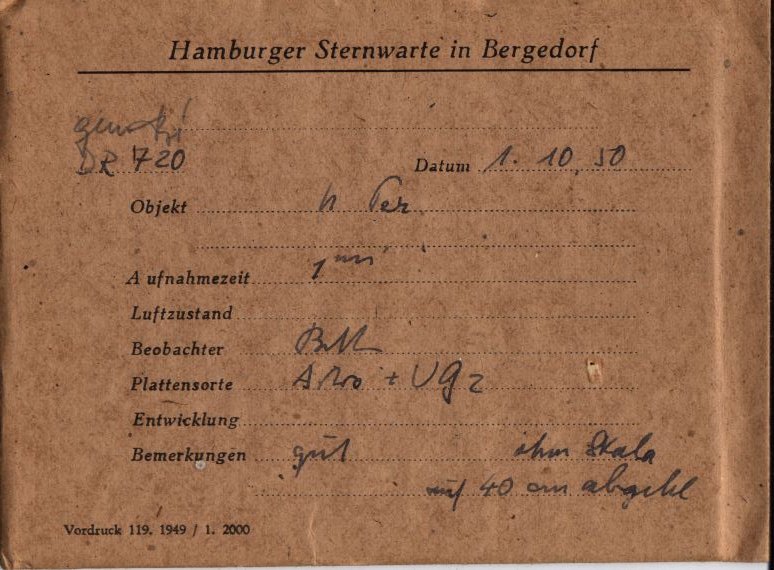 Hamburger Sternwarte in Bergedorf
DR 720
Datum 1. 10. 50
Objekt h Per
Aufnahmezeit 1 min
Luftzustand
Beobachter
Plattensorte + UG 2
Entwicklung
Bemerkungen gut ohne Skala
auf 40 cm
Vordruck 119. 1949 / 1. 2000